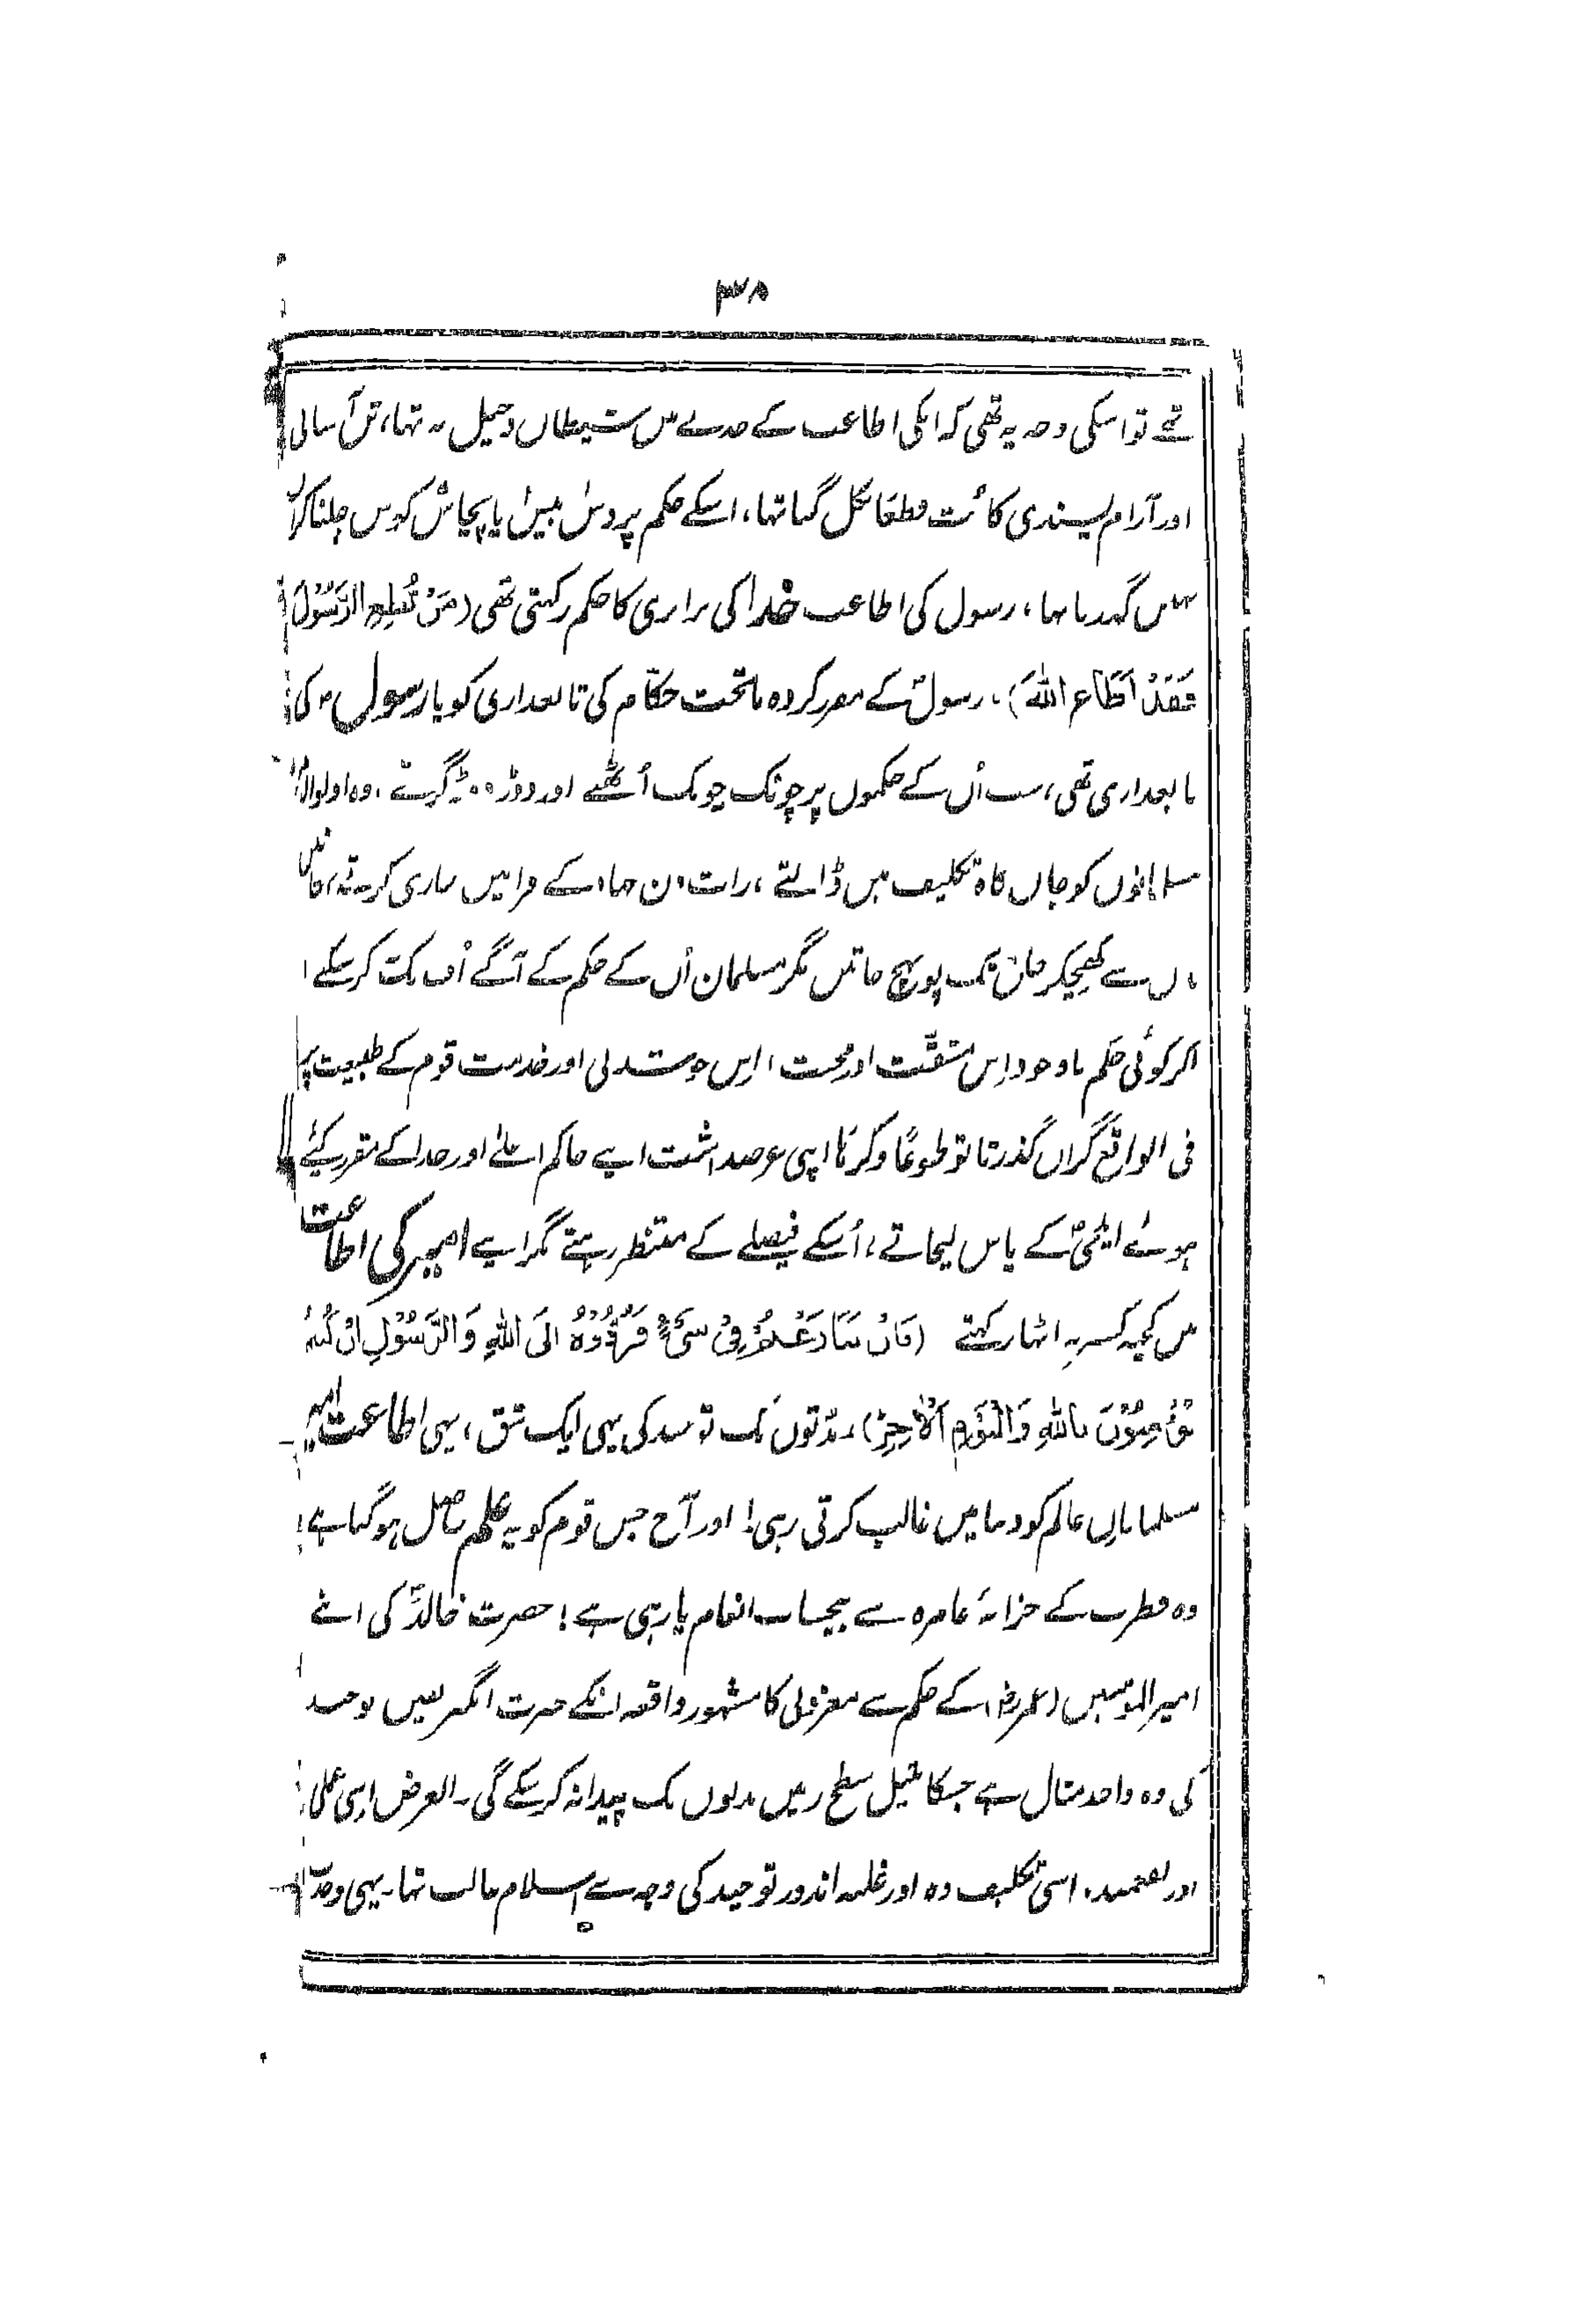 ۳۸
تھے تو اسکی وجہ یہ تھی کہ انکی اطاعت کے جذبے میں شیطان دخیل نہ تھا، تن آسانی
اور آرام پسندی کا بُت قطعًا نکل گیا تھا، اسکے حکم پر دس بیس یا پچاس کوس چلنا گراں
نہیں گذرتا تھا، رسول کی اطاعت خدا کی برابری کا حکم رکہتی تھی (مَنْ يُّطِعِ الرَّسُوْلَ
فَقَدْ اَطَاعَ اللّٰهَ)، رسولؐ کے مقرر کردہ ماتحت حکّام کی تابعداری گویا رسولؐ کی
تابعداری تھی، سب اُن کے حکموں پر چونک چونک اُٹھتے اور دوڑ پڑتے، وہ اولوالامر
مسلمانوں کو جاں کاہ تکلیف میں ڈالتے، رات دن جہاد کے فرامیں جاری کرتے، جانیں
سے کھچکر جان تک پہونچ جاتیں مگر مسلمان اُن کے حکم کے آگے اُف تک نہ کر سکتے!
اگر کوئی حکم باوجود اِس مشقّت اور محبت، اِس خوشدلی اور خدمت قوم کے طبیعت پر
فی الواقع گراں گذرتا تو طوعًا وکرہًا اپنی عرضداشت اپنے حاکم اعلےٰ اور خدا کے مقرر کیئے
ہوئے ایلچیؐ کے پاس لیجاتے، اُسکے فیصلے کے منتظر رہتے مگر اپنے امیر کی اطاعت
میں کچہ کسر نہ اٹھا رکہتے (فَاِنْ تَنَازَعْتُمْ فِيْ شَيْءٍ فَرُدُّوْهُ اِلَى اللّٰهِ وَالرَّسُوْلِ اِنْ كُنْتُمْ
تُؤْمِنُوْنَ بِاللّٰهِ وَالْيَوْمِ الْاٰخِرِ)، مدّتوں تک توحید کی یہی ایک شق، یہی اطاعت امیر
مسلمانانِ عالم کو دنیا میں غالب کرتی رہی! اور آج جس قوم کو یہ علم حاصل ہو گیا ہے!
وہ فطرت کے خزانۂ عامرہ سے بیحساب انعام پا رہی ہے! حضرت خالدؓ کی اپنے
امیرالمومنین (عمرؓ) کے حکم سے معزولی کا مشہور واقعہ انکے حیرت انگیز یقین توحید
کی وہ واحد مثال ہے جسکا مثیل سطح زمیں مدتوں تک پیدا نہ کر سکے گی۔ الغرض اسی عملی
اور اسی تکلیف دہ اور غلبہ اندوز توحید کی وجہ سے اسلام غالب تھا۔ یہی وحدت